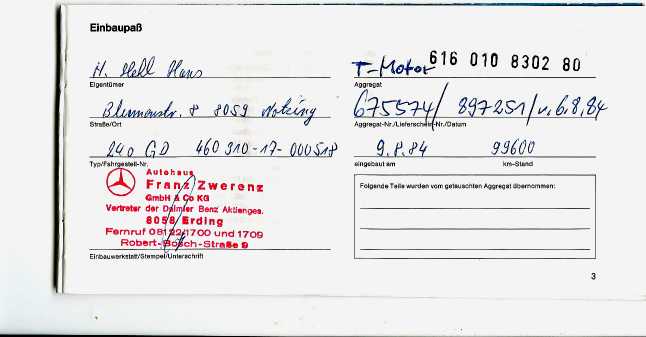 Einbaupaß
H. Hehl Hans
Eigentümer
T-Motor 616 010 8302 80
Aggregat
Blumenstr. 8 8059 Notzing
Straße/Ort
675574 / 897251 / v. 6.8.84
Aggregat-Nr./Lieferschein-Nr./Datum
240 GD 460 310-17-000518
Typ/Fahrgestell-Nr.
9.8.84 99600
eingebaut am km-Stand
Autohaus
Franz Zwerenz
GmbH & Co KG
Vertreter der Daimler Benz Aktienges.
8058 Erding
Fernruf 08122/1700 und 1709
Robert-Bosch-Straße 9
Einbauwerkstatt/Stempel/Unterschrift
Folgende Teile wurden vom getauschten Aggregat übernommen:
3